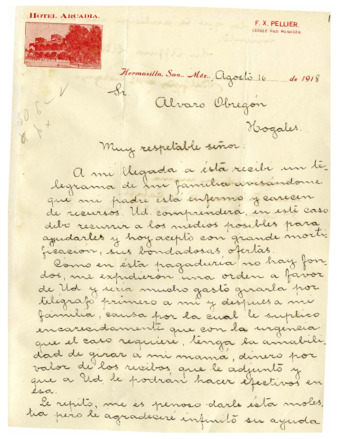 HOTEL ARCADIA.
F. X. PELLIER.
LESSEE AND MANAGER.
Hermosillo, Son. Méx. Agosto 16 de 1918
Sr.
Alvaro Obregón
Nogales.
Muy respetable señor:
A mi llegada a ésta recibí un te-
legrama de mi familia avisándome
que mi padre está enfermo y carecen
de recursos. Ud. comprenderá, en este caso
debo recurrir a los medios posibles para
ayudarles y hoy acepto con grande morti-
ficación, sus bondadosas ofertas.
Como en ésta pagaduría no hay fon-
dos, me expidieron una orden a favor
de Ud y sería mucho gasto girarla por
telégrafo primero a mi y despues a mi
familia, causa por la cual le suplico
encarecidamente que con la urgencia
que el caso requiere, tenga la amabili-
dad de girar a mi mamá, dinero por
valor de los recibos que le adjunto y
que a Ud le podrán hacer efectivos en
ésa.
Le repito, me es penoso darle ésta moles-
tia pero le agradeceré infinito su ayuda